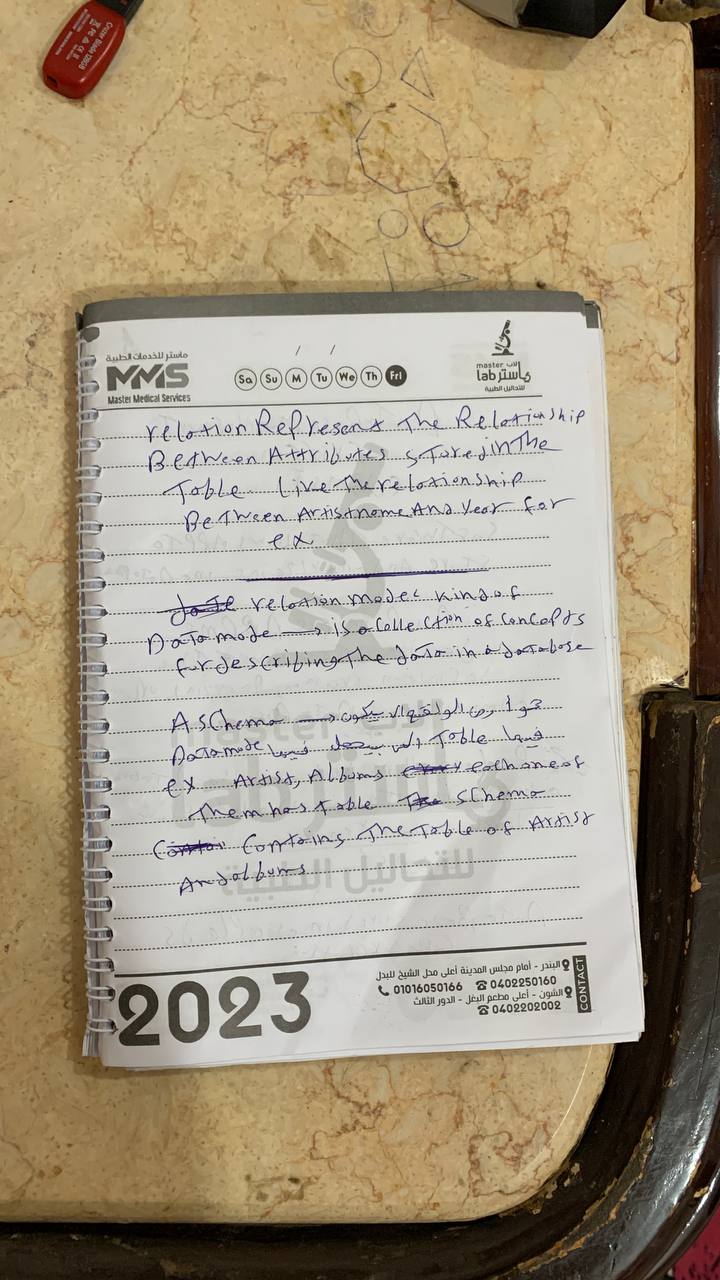 Cruzer Blade 128GB
ماستر للخدمات الطبية
MMS
Master Medical Services
/ /
Sa Su M Tu We Th Fri
master لاب
lab ماستر
للتحاليل الطبية
relation Represent The Relationship
Between Attributes stored in The
Table Like The relationship
Between Artist name And year for
ex
relation model kind of
Data mode → is a collection of concepts
for describing The data in a database
A schema → هو
Data mode Table فيها
ex Artist, Albums each one of
Them has table schema
Contains The Table of Artist
And albums
للتحاليل الطبية
2023
البندر - أمام مجلس المدينة أعلى محل الشيخ للبدل
01016050166 0402250160
الشون - أعلى مطعم البغل - الدور الثالث
0402202002
CONTACT